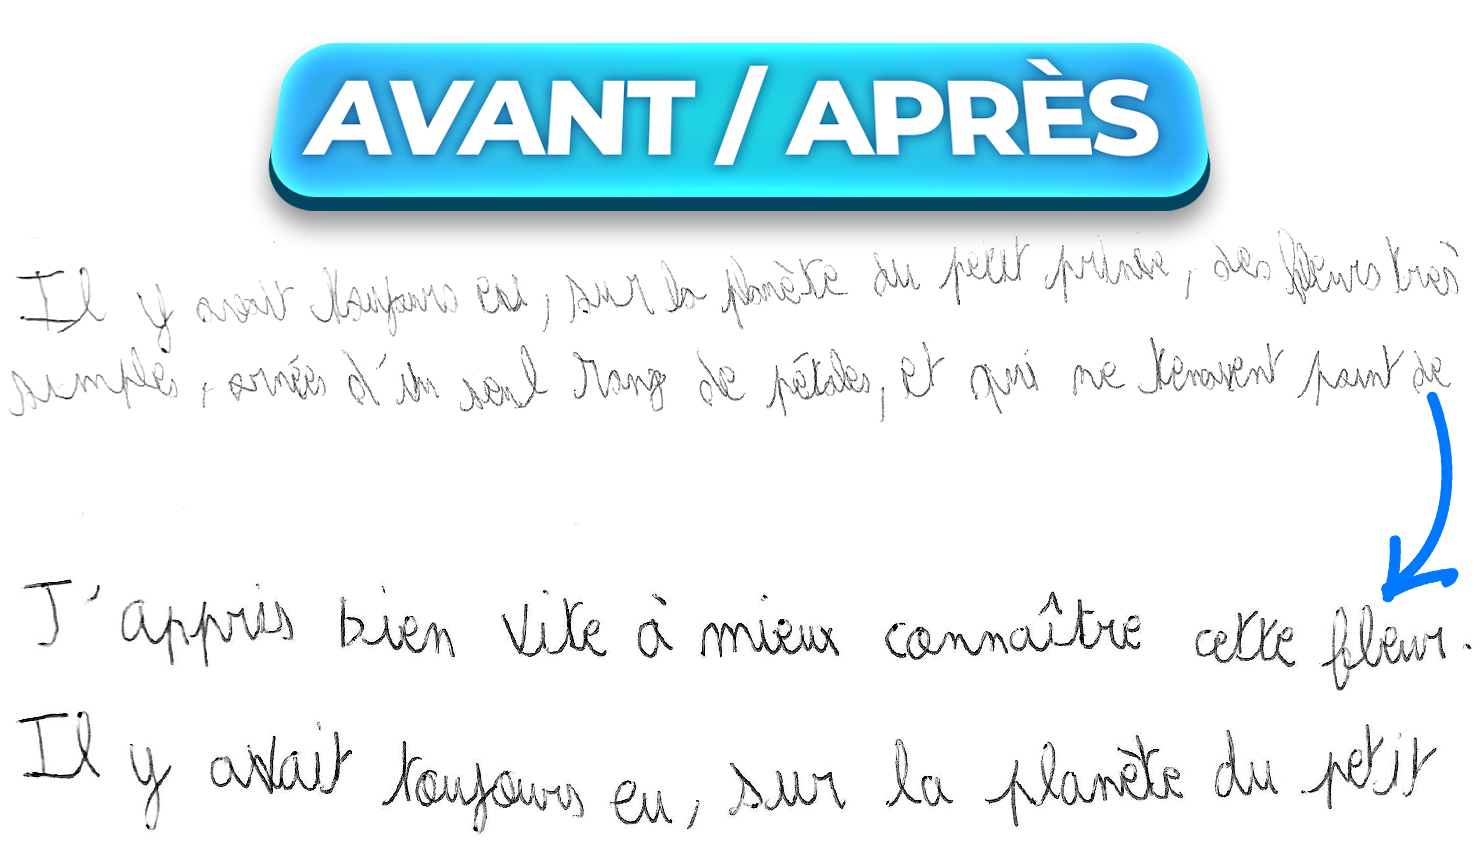 AVANT / APRÈS
Il y avait toujours eu, sur la planète du petit prince, des fleurs très
simples, ornées d'un seul rang de pétales, et qui ne tenaient point de
J'appris bien vite à mieux connaître cette fleur.
Il y avait toujours eu, sur la planète du petit